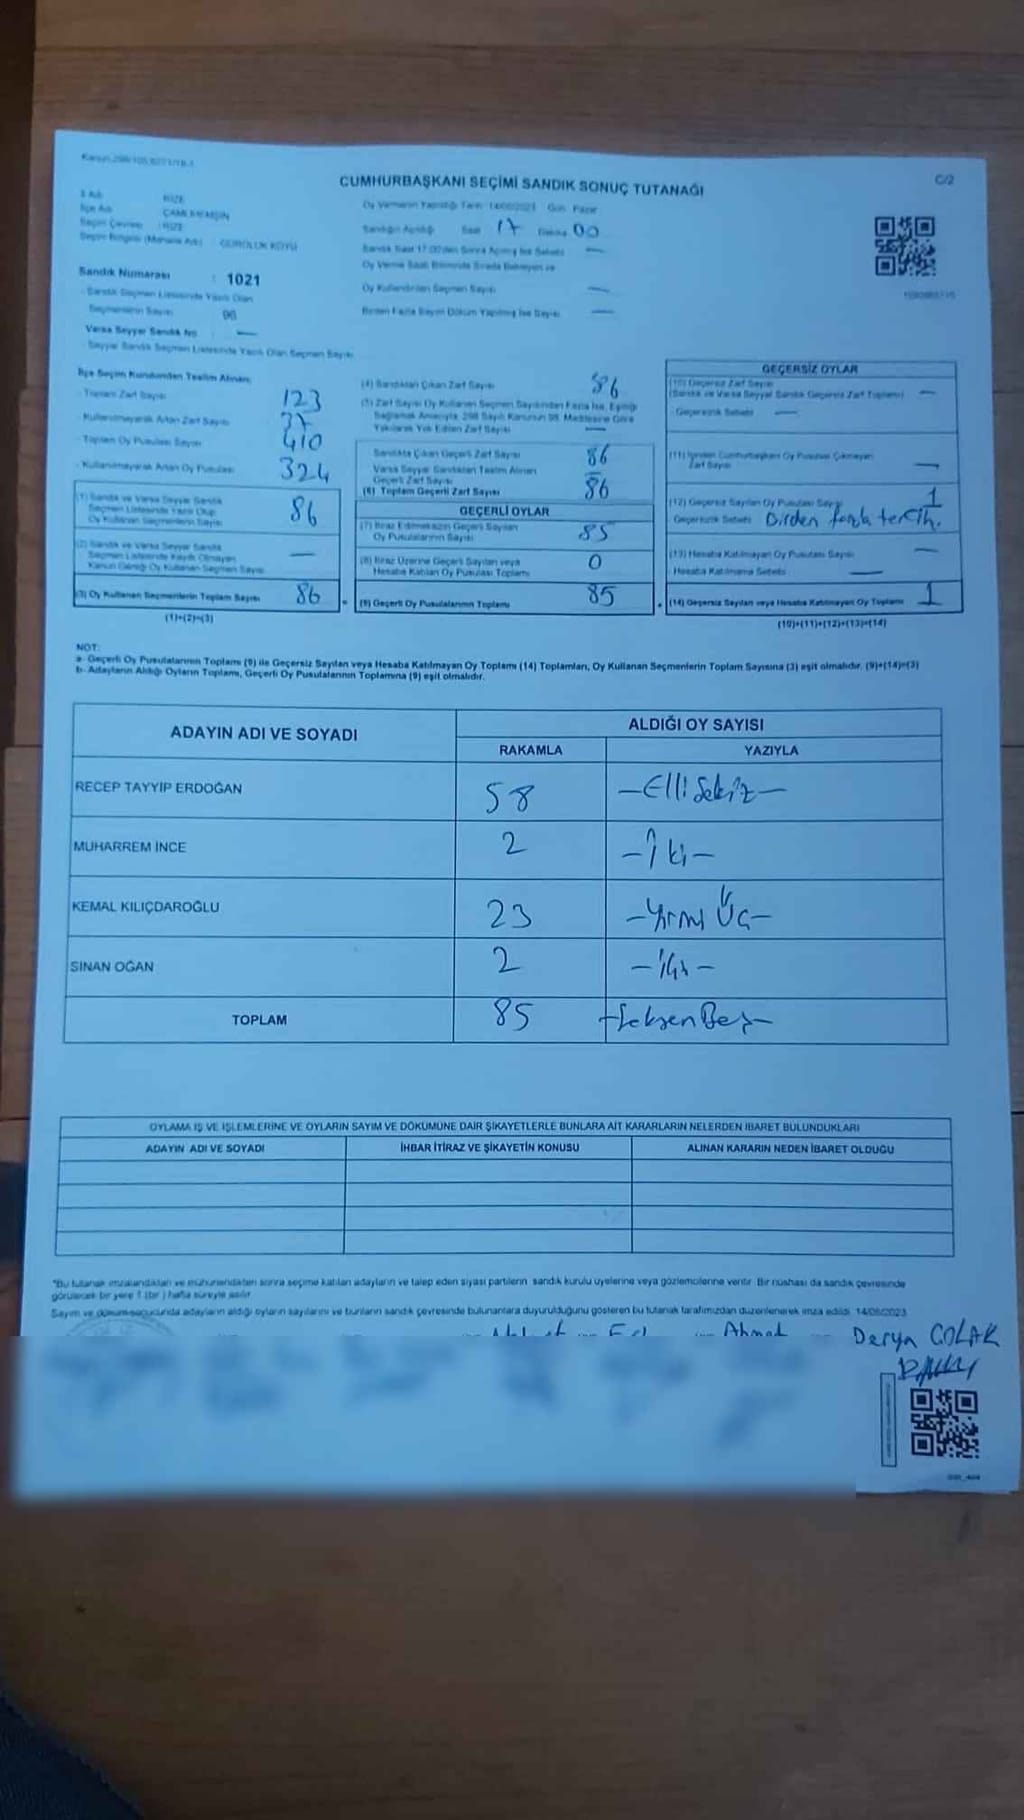 C/2
CUMHURBAŞKANI SEÇİMİ SANDIK SONUÇ TUTANAĞI
İl Adı RİZE
İlçe Adı ÇAMLIHEMŞİN
Seçim Çevresi RİZE
Oy Vermenin Yapıldığı Tarih 14/05/2023 Gün Pazar
Sandığın Açıldığı Saat 17 Dakika 00
Sandık Saat 17:00'den Sonra Açılmış İse Sebebi —
Oy Kullandırılan Seçmen Sayısı —
Birden Fazla Sayım Döküm Yapılmış İse Sayısı —
Sandık Numarası : 1021
Sandık Seçmen Listesinde Yazılı Olan
Seçmenlerin Sayısı 96
Varsa Seyyar Sandık No —
Seyyar Sandık Seçmen Listesinde Yazılı Olan Seçmen Sayısı
İlçe Seçim Kurulundan Teslim Alınan:
Toplam Zarf Sayısı 123
Kullanılmayarak Artan Zarf Sayısı 37
Toplam Oy Pusulası Sayısı 410
Kullanılmayarak Artan Oy Pusulası 324
(1) Sandık ve Varsa Seyyar Sandık
Seçmen Listesinde Yazılı Olup
Oy Kullanan Seçmenlerin Sayısı 86
(2) Sandık ve Varsa Seyyar Sandık
Seçmen Listesinde Kayıtlı Olmayan
Kanun Gereği Oy Kullanan Seçmen Sayısı —
(3) Oy Kullanan Seçmenlerin Toplam Sayısı 86
(1)+(2)=(3)
(4) Sandıktan Çıkan Zarf Sayısı 86
(5) Zarf Sayısı Oy Kullanan Seçmen Sayısından Fazla İse, Eşitliği
Sağlamak Amacıyla, 298 Sayılı Kanunun 98. Maddesine Göre
Yakılarak Yok Edilen Zarf Sayısı —
Sandıkta Çıkan Geçerli Zarf Sayısı 86
Varsa Seyyar Sandıktan Teslim Alınan
Geçerli Zarf Sayısı —
(6) Toplam Geçerli Zarf Sayısı 86
GEÇERLİ OYLAR
(7) İtiraz Edilmeksizin Geçerli Sayılan
Oy Pusulalarının Sayısı 85
(8) İtiraz Üzerine Geçerli Sayılan veya
Hesaba Katılan Oy Pusulası Toplamı 0
(9) Geçerli Oy Pusulalarının Toplamı 85
GEÇERSİZ OYLAR
(10) Geçersiz Zarf Sayısı
(Sandık ve Varsa Seyyar Sandık Geçersiz Zarf Toplamı) —
Geçersizlik Sebebi —
(11) İçinden Cumhurbaşkanı Oy Pusulası Çıkmayan
Zarf Sayısı —
(12) Geçersiz Sayılan Oy Pusulası Sayısı 1
Geçersizlik Sebebi Birden fazla tercih.
(13) Hesaba Katılmayan Oy Pusulası Sayısı —
Hesaba Katılmama Sebebi —
(14) Geçersiz Sayılan veya Hesaba Katılmayan Oy Toplamı 1
(10)+(11)+(12)+(13)=(14)
NOT:
a- Geçerli Oy Pusulalarının Toplamı (9) ile Geçersiz Sayılan veya Hesaba Katılmayan Oy Toplamı (14) Toplamları, Oy Kullanan Seçmenlerin Toplam Sayısına (3) eşit olmalıdır. (9)+(14)=(3)
b- Adayların Aldığı Oyların Toplamı, Geçerli Oy Pusulalarının Toplamına (9) eşit olmalıdır.
ADAYIN ADI VE SOYADI
ALDIĞI OY SAYISI
RAKAMLA YAZIYLA
RECEP TAYYİP ERDOĞAN 58 —Elli Sekiz—
MUHARREM İNCE 2 —İki—
KEMAL KILIÇDAROĞLU 23 —Yirmi Üç—
SİNAN OĞAN 2 —İki—
TOPLAM 85 —Seksen Beş—
OYLAMA İŞ VE İŞLEMLERİNE VE OYLARIN SAYIM VE DÖKÜMÜNE DAİR ŞİKAYETLERLE BUNLARA AİT KARARLARIN NELERDEN İBARET BULUNDUKLARI
ADAYIN ADI VE SOYADI İHBAR İTİRAZ VE ŞİKAYETİN KONUSU ALINAN KARARIN NEDEN İBARET OLDUĞU
"Bu tutanak imzalandıktan ve mühürlendikten sonra seçime katılan adayların ve talep eden siyasi partilerin sandık kurulu üyelerine veya gözlemcilerine verilir. Bir nüshası da sandık çevresinde
görülecek bir yere 1 (bir) hafta süreyle asılır.
Sayım ve döküm sonucunda adayların aldığı oyların sayılarını ve bunların sandık çevresinde bulunanlara duyurulduğunu gösteren bu tutanak tarafımızdan düzenlenerek imza edildi. 14/05/2023
Ahmet
Derya ÇOLAK